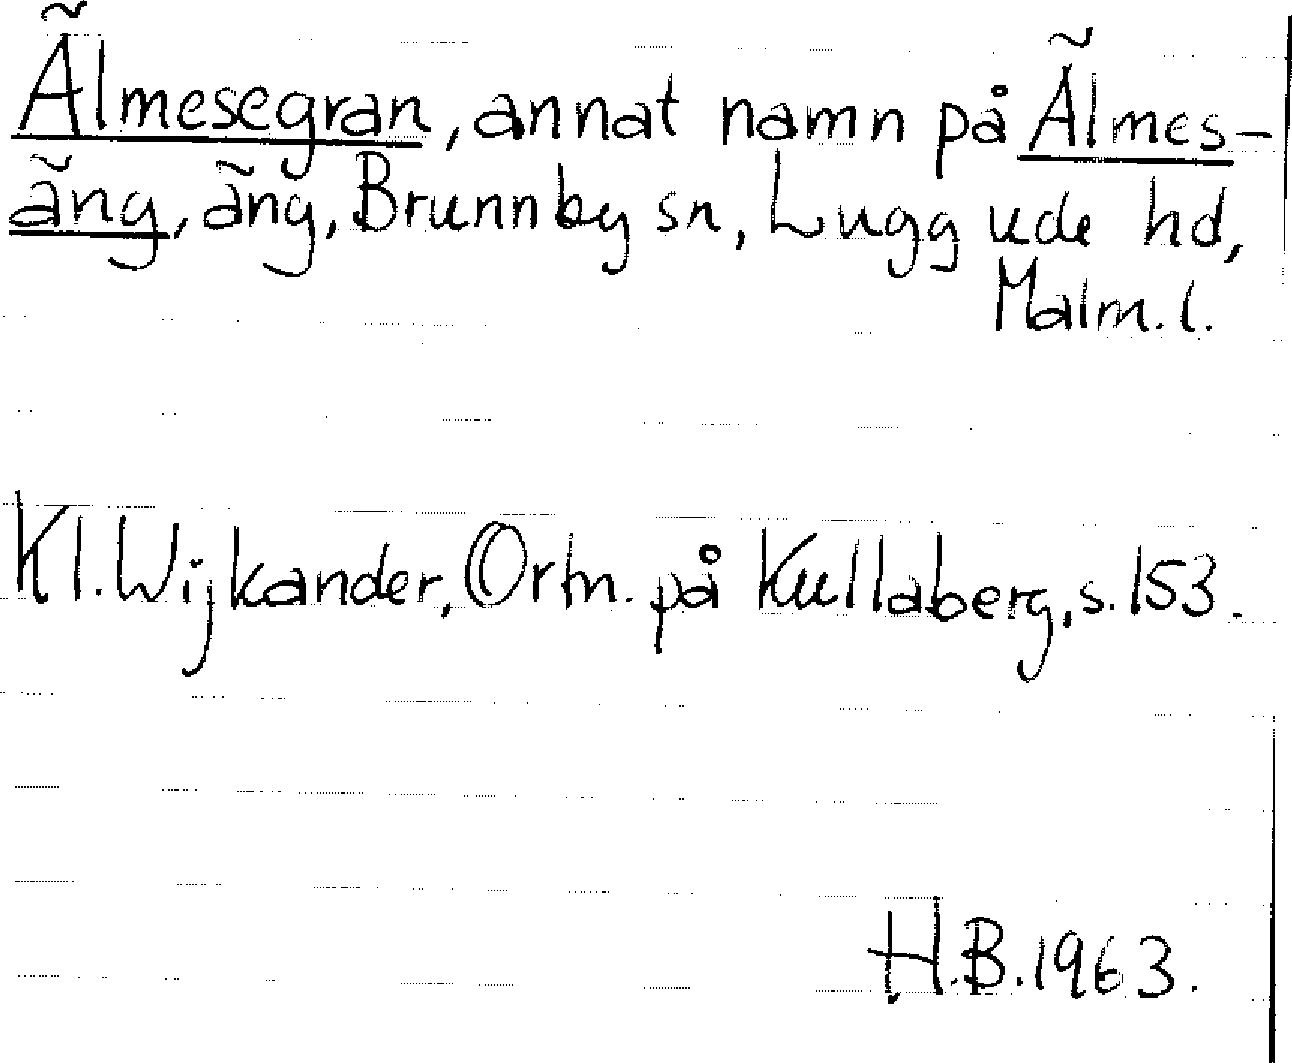 Älmesegran, annat namn på Älmes-
äng, äng, Brunnby sn, Luggude hd,
Malm. l.
Kl. Wijkander, Ortn. på Kullaberg, s. 153.
H.B. 1963.